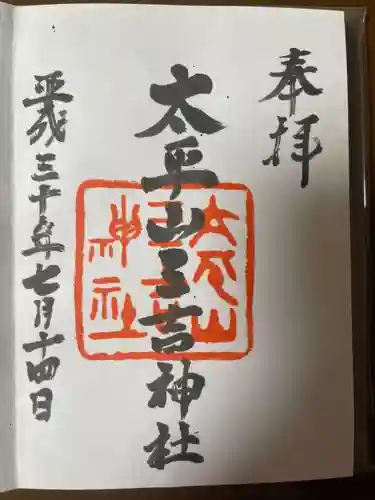 奉拝
太平山三吉神社
太平山
三吉
神社
平成三十年七月十四日